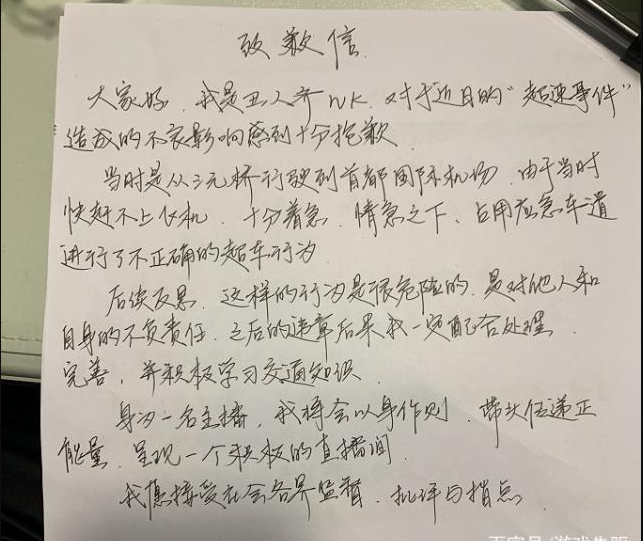 致歉信
大家好，我是丑人齐WK，对于近日的"超速事件"
造成的不良影响感到十分抱歉
当时是从三元桥行驶到首都国际机场，由于当时
快赶不上飞机，十分着急，情急之下，占用应急车道
进行了不正确的超车行为
后续反思，这样的行为是很危险的，是对他人和
自身的不负责任，之后的违章后果我一定配合处理，
完善，并积极学习交通知识，
身为一名主播，我将会以身作则，带头传递正
能量，呈现一个积极的直播间，
我愿接受社会各界监督，批评与指点